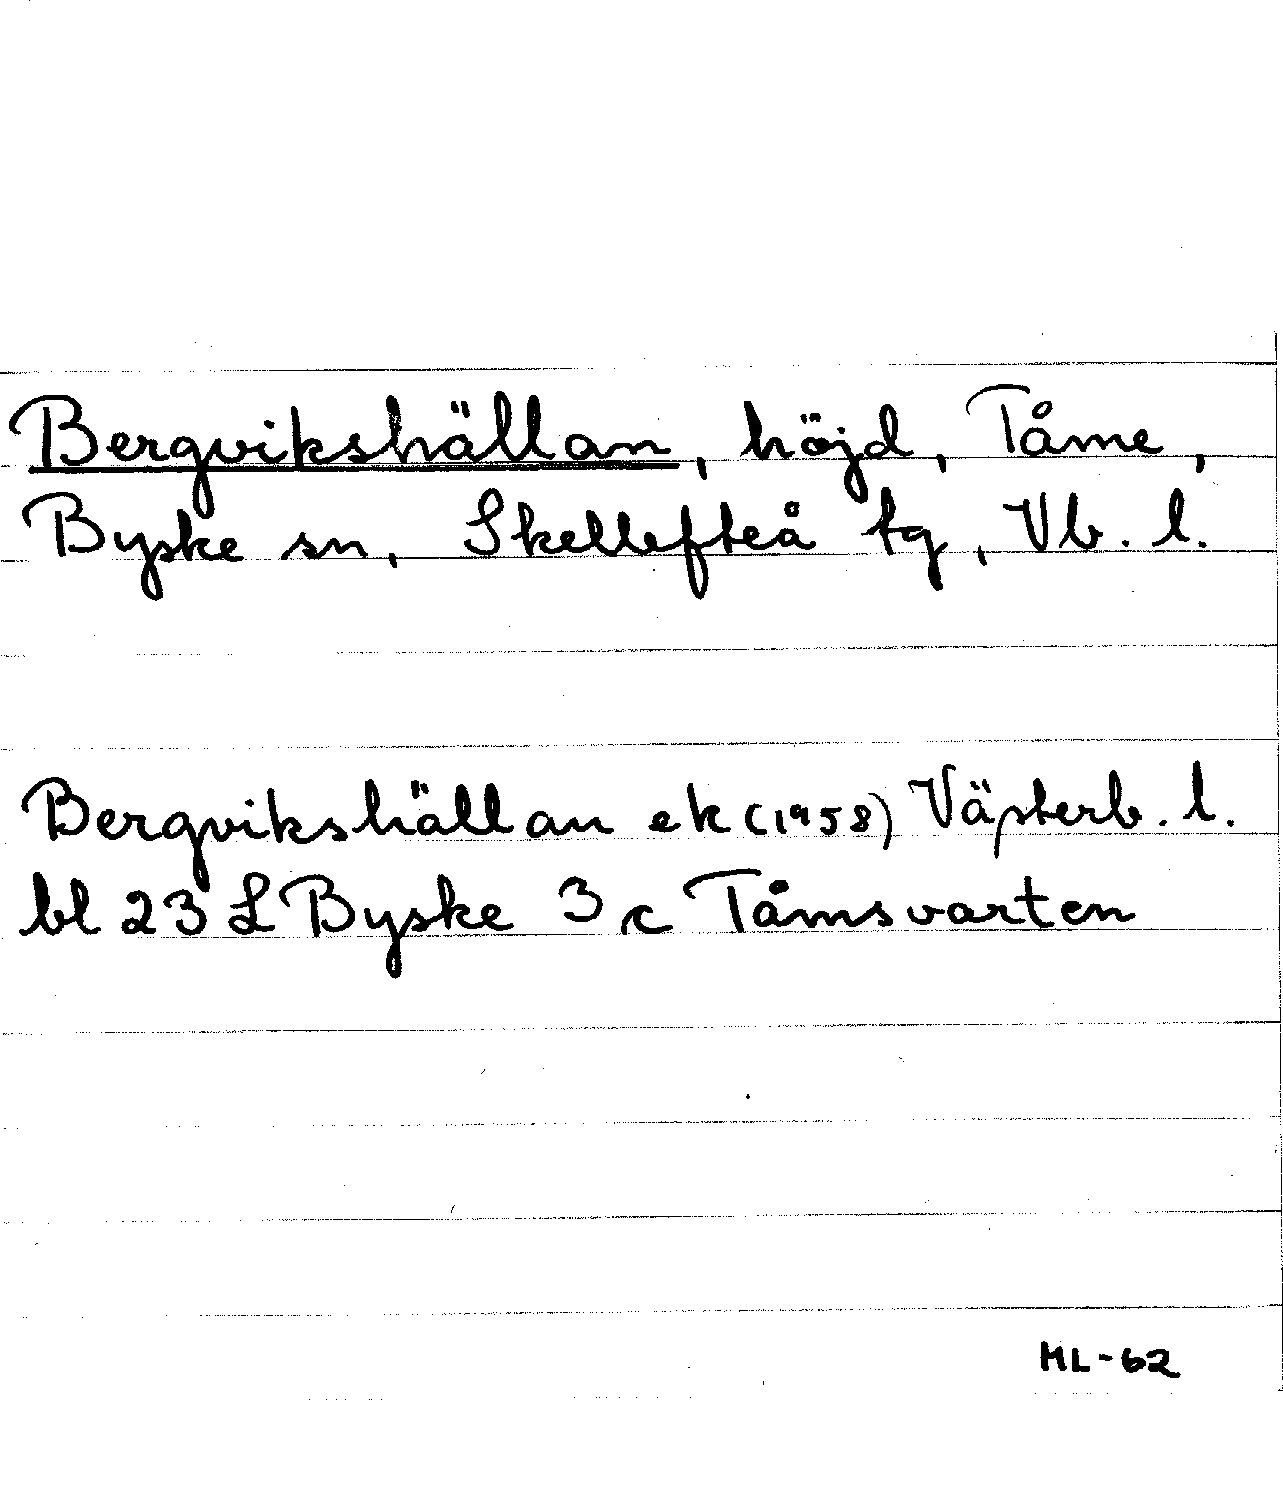 Bergvikshällan, höjd, Tåme,
Byske sn, Skellefteå tg, Vb. l.
Bergvikshällan ek (1958) Västerb. l.
bl 23 L Byske 3 c Tåmsvarten
ML-62